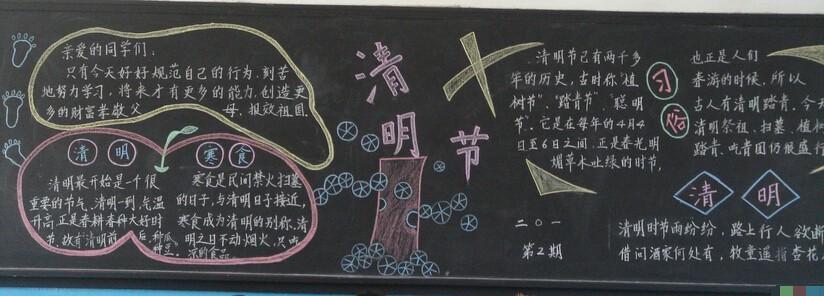 亲爱的同学们：
只有今天好好规范自己的行为，刻苦
地努力学习，将来才有更多的能力，创造更
多的财富孝敬父母，报效祖国。
清明
清明最开始是一个很
重要的节气，清明一到，气温
升高，正是春耕春种大好时
节，故有"清明前后，种瓜
种豆。
寒食
寒食是民间禁火扫墓
的日子，与清明日子接近，
寒食成为清明的别称，清
明之日不动烟火，只吃
凉的食品
清明节
清明节已有两千多
年的历史，古时你"植
树节"、"踏青节"、聪明
节"。它是在每年的4月4
日至6日之间，正是春光明
媚草木吐绿的时节，
习俗
也正是人们
春游的时候，所以
古人有清明踏青，今天
清明祭祖、扫墓、植树
踏青、听青团仍很盛行
二〇一
第2期
清明
清明时节雨纷纷，路上行人欲断
借问酒家何处有，牧童遥指杏花